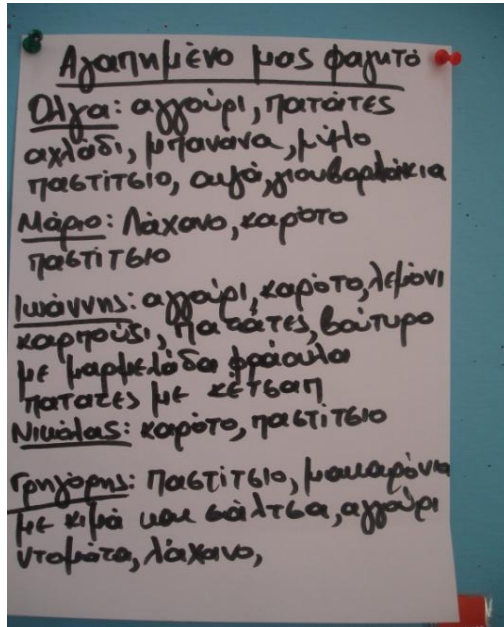 Αγαπημένο μας φαγητό
Όλγα: αγγούρι, πατάτες
αχλάδι, μπανανα, μήλο
παστίτσιο, αυγά, γιουβαρλάκια
Μάριο: Λάχανο, καρότο
παστίτσιο
Ιωάννης: αγγούρι, καρότο, λεμόνι
καρπούζι, πατάτες, βούτυρο
με μαρμελάδα φράουλα
πατατες με κέτσαπ
Νικόλας: καρότο, παστίτσιο
Γρηγόρης: παστίτσιο, μακαρόνια
με κιμά και σάλτσα, αγγούρι
ντομάτα, λάχανο,